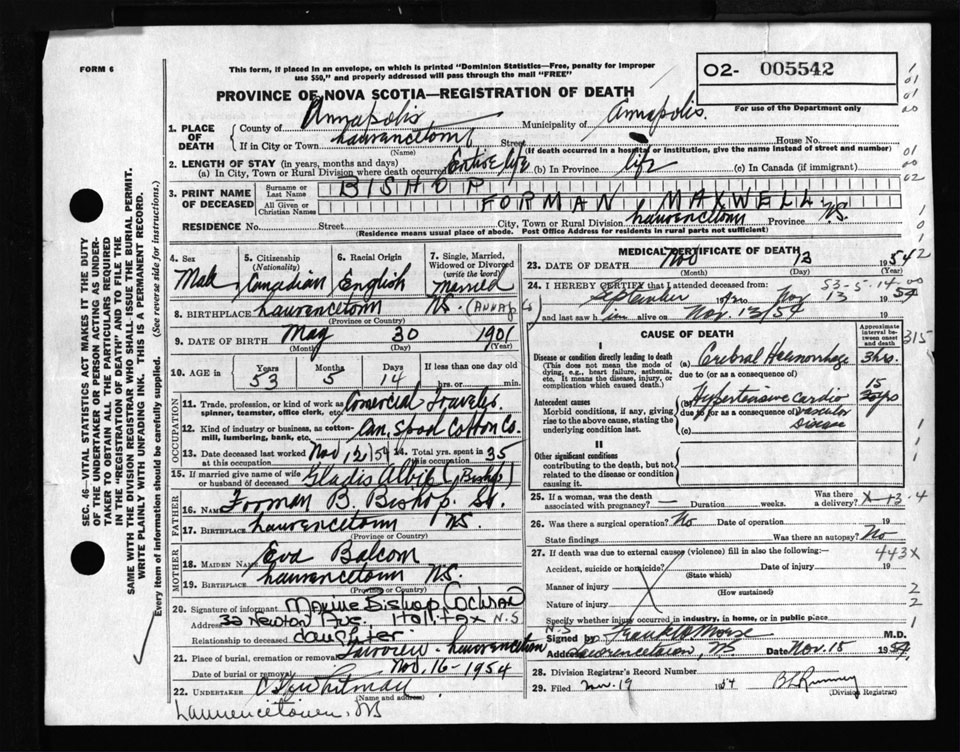 FORM 6
This form, if placed in an envelope, on which is printed "Dominion Statistics—Free, penalty for improper
use $50," and properly addressed will pass through the mail "FREE"
O2- 005542
For use of the Department only
PROVINCE OF NOVA SCOTIA—REGISTRATION OF DEATH
1. PLACE OF DEATH
County of Annapolis Municipality of Annapolis.
If in City or Town Lawrencetown Street House No.
(Name) (If death occurred in a hospital or institution, give the name instead of street and number)
2. LENGTH OF STAY (in years, months and days)
(a) In City, Town or Rural Division where death occurred Entire life (b) In Province life (c) In Canada (if immigrant)
3. PRINT NAME OF DECEASED
Surname or Last Name BISHOP
All Given or Christian Names FORMAN MAXWELL
RESIDENCE No. Street City, Town or Rural Division Lawrencetown Province N.S.
(Residence means usual place of abode. Post Office Address for residents in rural parts not sufficient)
SEC. 46—VITAL STATISTICS ACT MAKES IT THE DUTY
OF THE UNDERTAKER OR PERSON ACTING AS UNDER-
TAKER TO OBTAIN ALL THE PARTICULARS REQUIRED
IN THE "REGISTRATION OF DEATH" AND TO FILE THE
SAME WITH THE DIVISION REGISTRAR WHO SHALL ISSUE THE BURIAL PERMIT.
WRITE PLAINLY WITH UNFADING INK. THIS IS A PERMANENT RECORD.
Every item of information should be carefully supplied. (See reverse side for instructions.)
4. Sex Male
5. Citizenship (Nationality) Canadian
6. Racial Origin English
7. Single, Married, Widowed or Divorced (write the word) Married
8. BIRTHPLACE Lawrencetown N.S. (Annap Co)
(Province or Country)
9. DATE OF BIRTH May 30 1901
(Month) (Day) (Year)
10. AGE in Years 53 Months 5 Days 14 If less than one day old
hrs. or min.
OCCUPATION
11. Trade, profession, or kind of work as spinner, teamster, office clerk, etc. Comercial Traveler.
12. Kind of industry or business, as cotton-mill, lumbering, bank, etc. Can. Spool Cotton Co.
13. Date deceased last worked at this occupation Nov 12/54 14. Total yrs. spent in this occupation 35
15. If married give name of wife or husband of deceased Gladis (Bishop)
FATHER
16. NAME Forman B. Bishop. Sr.
17. BIRTHPLACE Lawrencetown N.S.
(Province or Country)
MOTHER
18. MAIDEN NAME Eva Balcom
19. BIRTHPLACE Lawrencetown N.S.
(Province or Country)
20. Signature of informant Maxine Bishop Cochran
Address 32 Newton Ave. Halifax N.S
Relationship to deceased daughter
21. Place of burial, cremation or removal Fairview - Lawrencetown N.S
Date of burial or removal Nov. 16 - 1954
22. UNDERTAKER Whitman
(Name and address)
Lawrencetown, NS
MEDICAL CERTIFICATE OF DEATH
23. DATE OF DEATH Nov 13 1954
(Month) (Day) (Year)
53-5-14-00
24. I HEREBY CERTIFY that I attended deceased from:
September 19 to Nov 13 1954
and last saw him alive on Nov. 13/54 19
CAUSE OF DEATH
Approximate interval between onset and death
I
Disease or condition directly leading to death
(This does not mean the mode of dying, e.g., heart failure, asthenia, etc. It means the disease, injury, or complication which caused death.)
(a) Cerebral Haemorrhage 3 hrs.
due to (or as a consequence of)
Antecedent causes
Morbid conditions, if any, giving rise to the above cause, stating the underlying condition last.
(b) Hypertensive Cardio 15
due to (or as a consequence of) vascular
(c) Disease
II
Other significant conditions
contributing to the death, but not related to the disease or condition causing it.
315
25. If a woman, was the death associated with pregnancy? — Duration weeks. Was there a delivery?
26. Was there a surgical operation? No Date of operation 19
State findings Was there an autopsy? No
27. If death was due to external causes (violence) fill in also the following:— 443X
Accident, suicide or homicide? Date of injury 19
(State which)
Manner of injury
(How sustained)
Nature of injury
Specify whether injury occurred in industry, in home, or in public place
Signed by Frank Morse M.D.
Address Lawrencetown, N.S. Date Nov. 15 1954
28. Division Registrar's Record Number
29. Filed Nov. 19 1954
(Division Registrar)